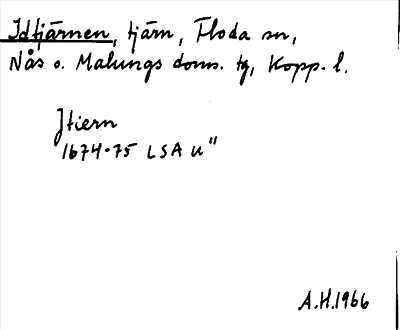 Idtjärnen, tjärn, Floda sn,
Nås o. Malungs doms. tg, Kopp. l.
Jtiern
1674-75 LSA u"
A.H.1966